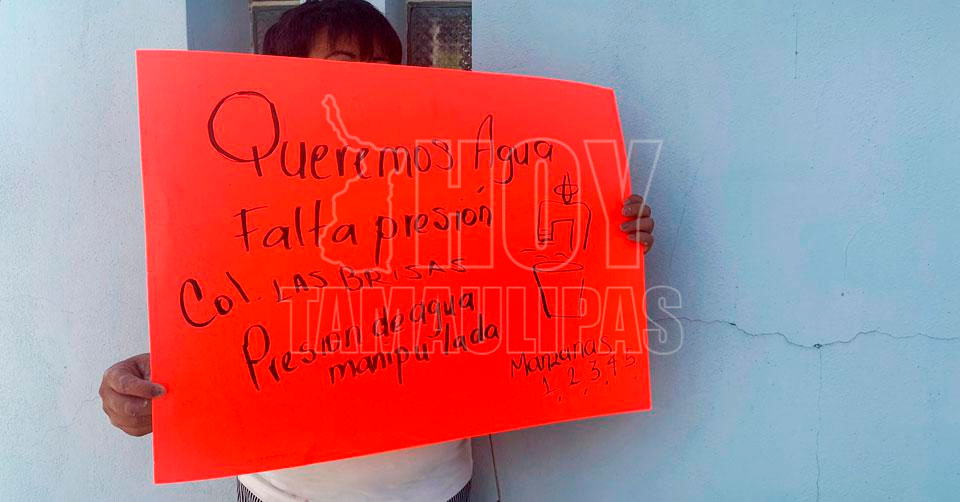 Queremos Agua
Falta presión
Col. LAS BRISAS
Presion de agua
manipulada
Manzanas
1, 2, 3, 4 5.
HOY
TAMAULIPAS